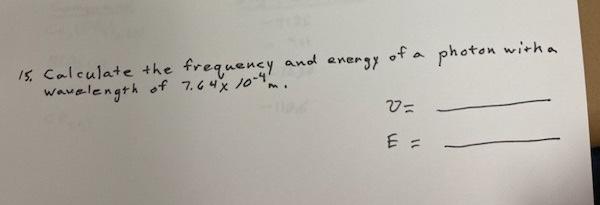 15. Calculate the frequency and energy of a photon with a
wavelength of 7.64 x 10⁻⁴ m.
υ = 
E =